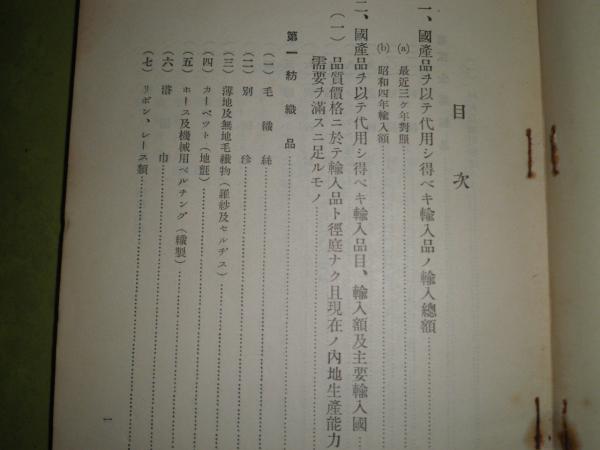 目次
一、國產品ヲ以テ代用シ得ベキ輸入品ノ輸入總額
(a) 最近三ケ年對照
(b) 昭和四年輸入額
二、國產品ヲ以テ代用シ得ベキ輸入品目、輸入額及主要輸入國
(一) 品質價格ニ於テ輸入品ト徑庭ナク且現在ノ內地生產能力
需要ヲ滿スニ足ルモノ
第一 紡織品
(一) 毛織絲
(二) 別珍
(三) 薄地及無地毛織物(羅紗及セルヂス)
(四) カーペツト(地氈)
(五) ホース及機械用ベルチング(織製)
(六) 浴巾
(七) リボン、レース類
一